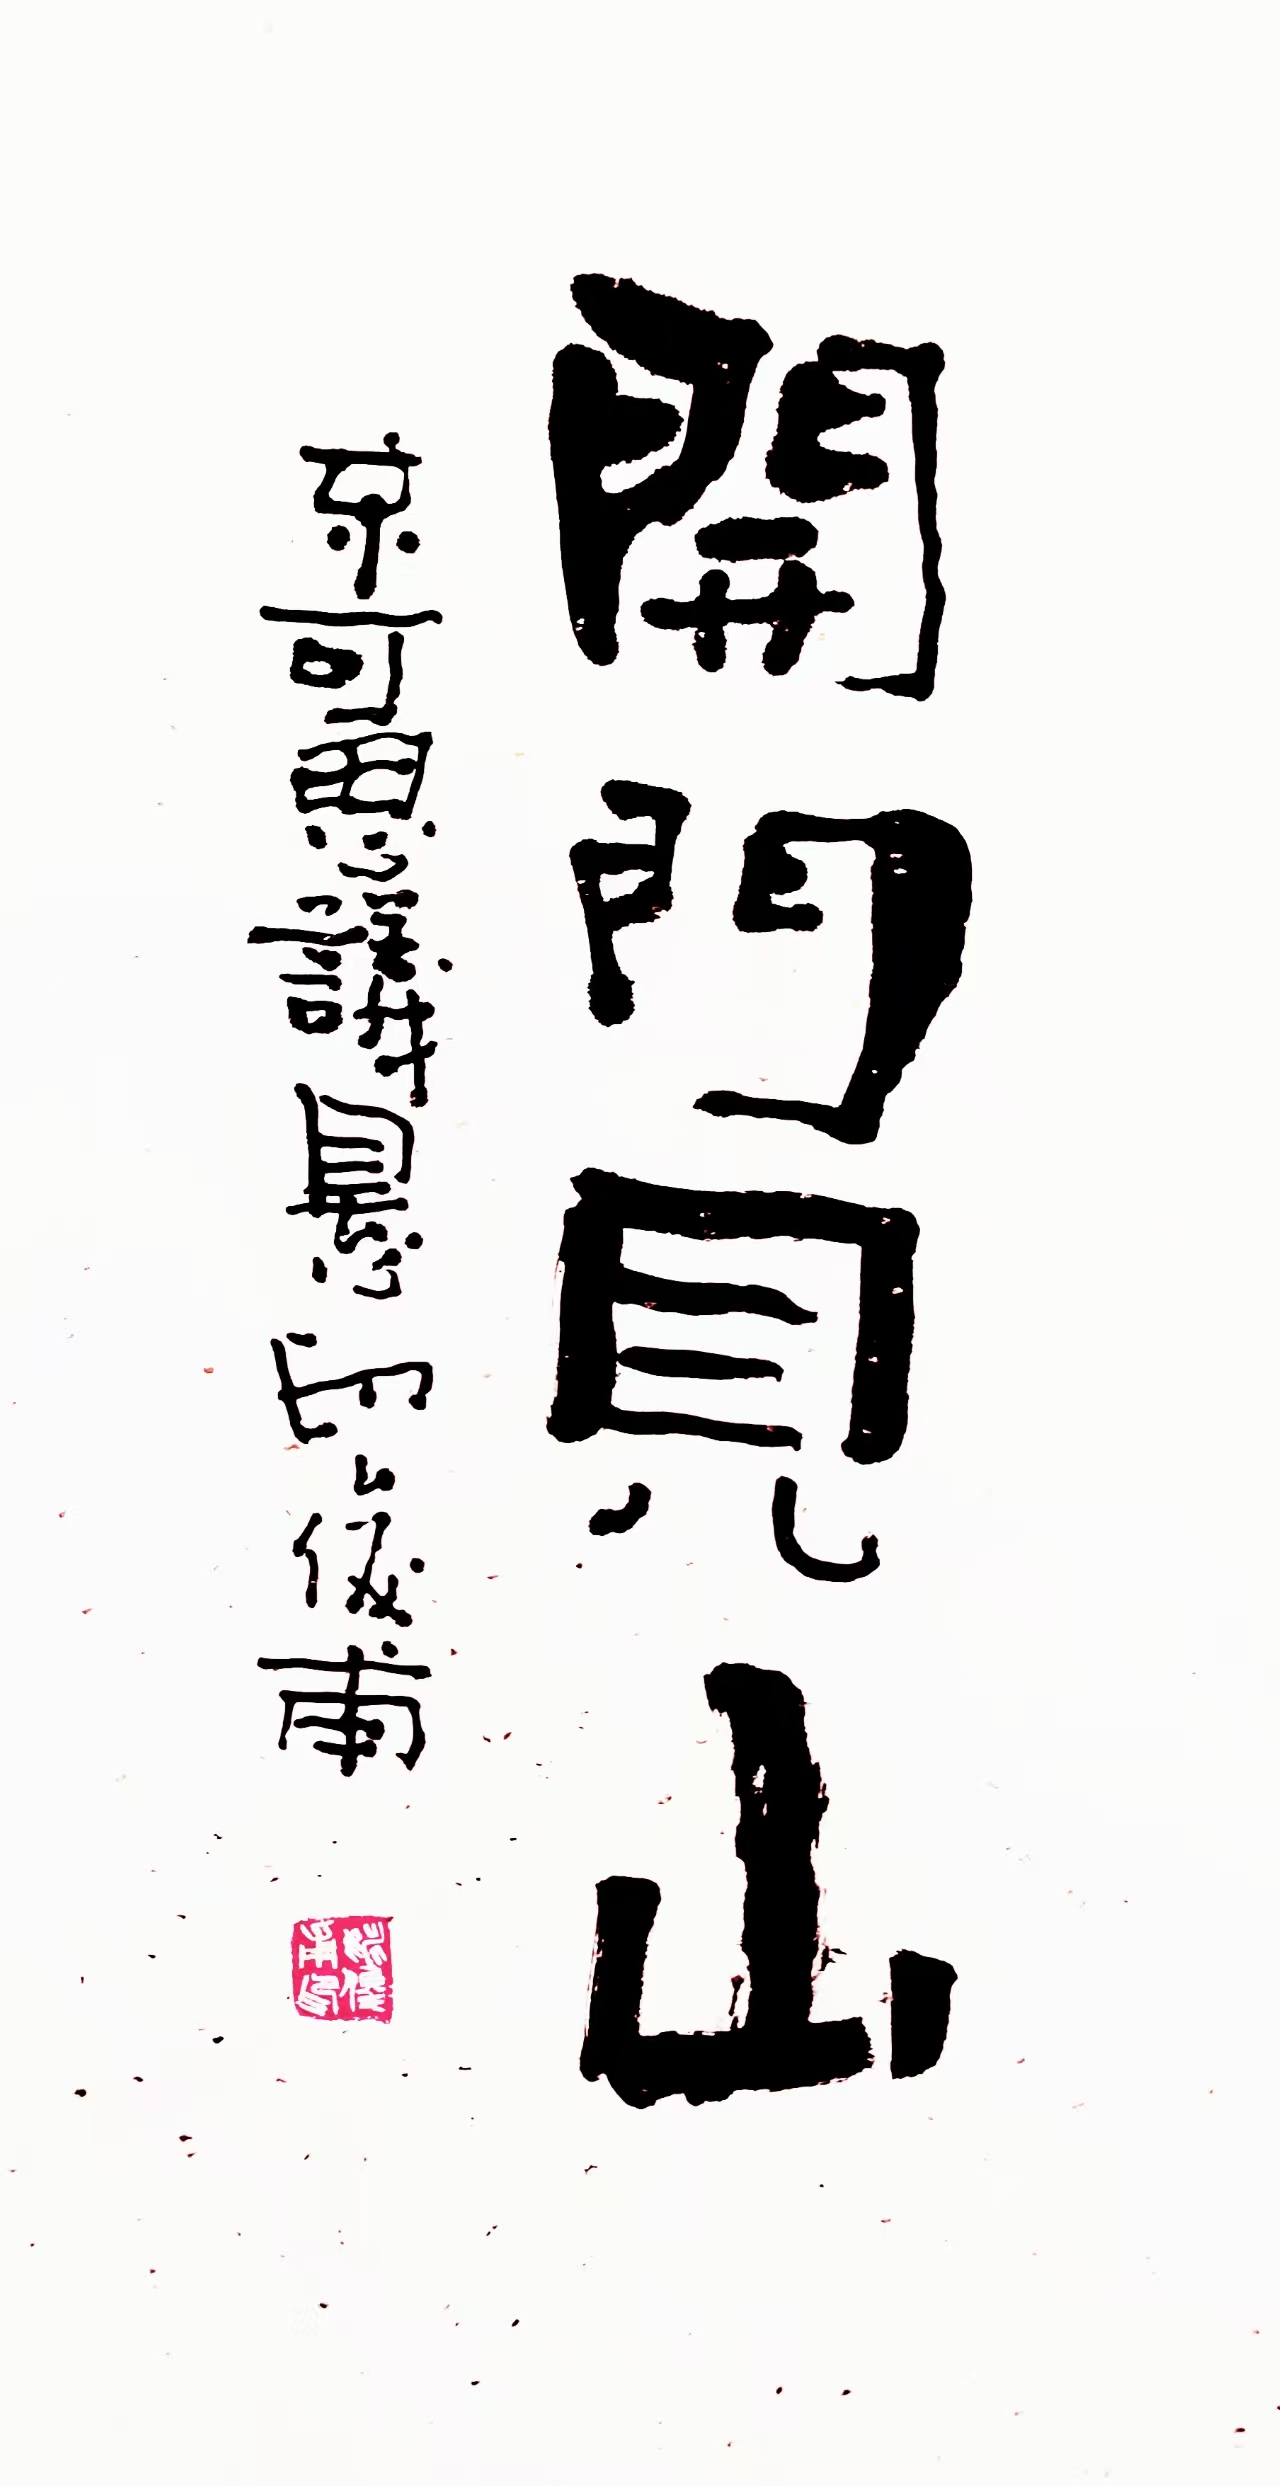 開門見山
京可思議懸甫